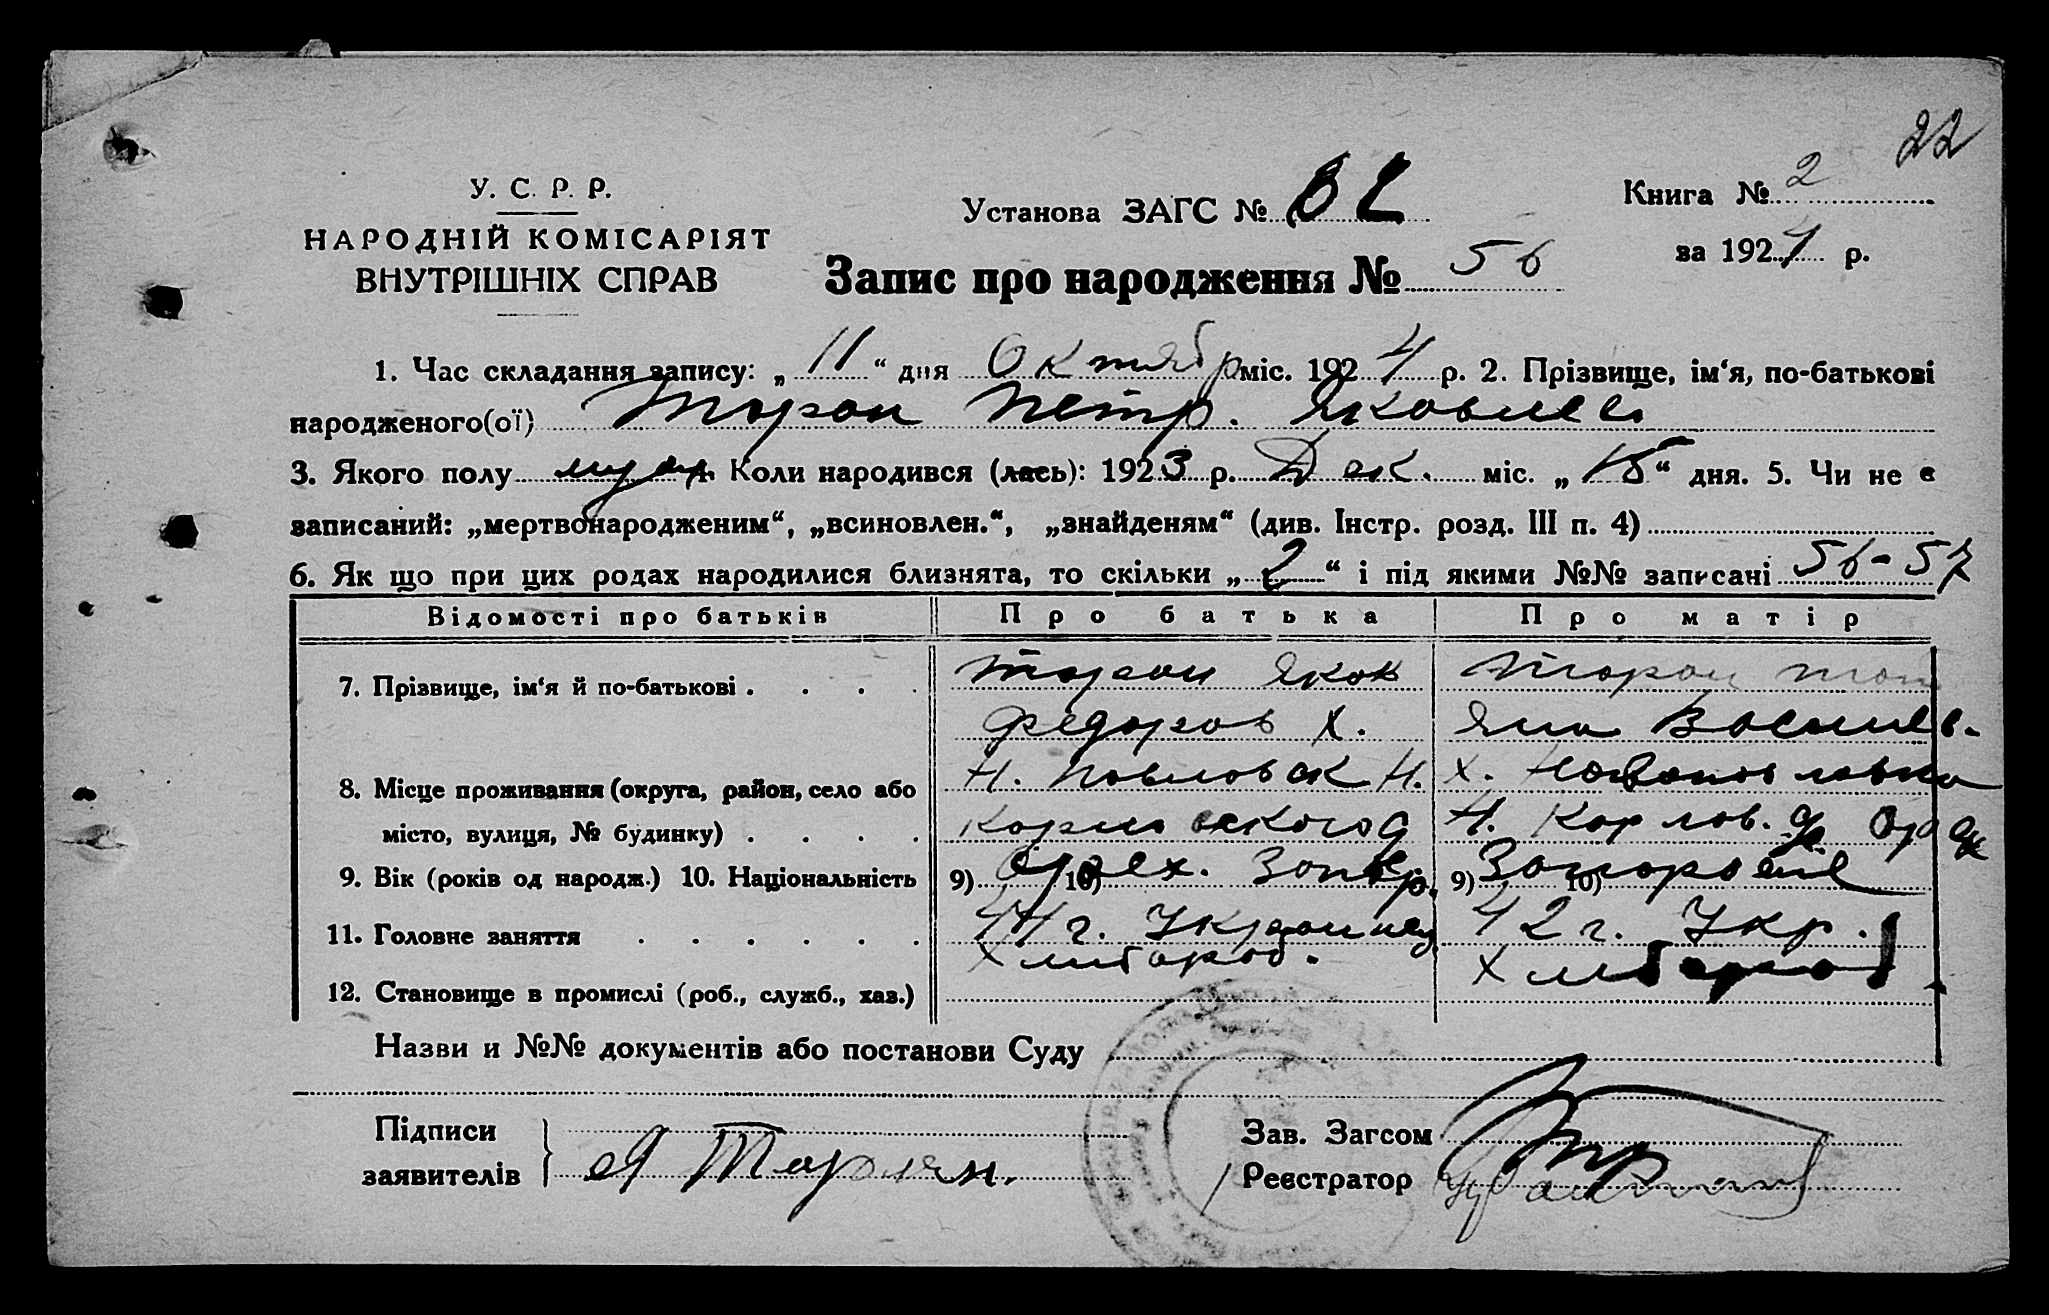 22
У. С. Р. Р.
НАРОДНІЙ КОМІСАРІЯТ
ВНУТРІШНІХ СПРАВ
Установа ЗАГС №
Книга № 2
за 1924 р.
Запис про народження № 56
1. Час складання запису: „ 11 “ дня Октября міс. 1924 р. 2. Прізвище, ім‘я, по-батькові
народженого(ої) Таран Петр. Яковлев
3. Якого полу муж. 4. Коли народився (лась): 1923 р. Дек. міс. „ 15 “ дня. 5. Чи не є
записаний: „мертвонародженим“, „всиновлен.“, „знайденям“ (див. Інстр. розд. III п. 4)
6. Як що при цих родах народилися близнята, то скільки „ 2 “ і під якими №№ записані 56-57
Відомості про батьків Про батька Про матір
7. Прізвище, ім‘я й по-батькові . . . . Таран Яков Таран Тать
Федоров Х. яна Васильев.
8. Місце проживання (округа, район, село або Н. Павловск Н. х. Новопавловка
місто, вулиця, № будинку) . . . . Карловского Н. Карлов.
9. Вік (років од народж.) 10. Національність 9) 10) Орех. Запор. 9) 10) Запорожье
11. Головне заняття . . . . . . 44 г. Украинец 42 г. Укр.
Хлебороб. Хлебороб
12. Становище в промислі (роб., служб., хаз.)
Назви и №№ документів або постанови Суду
Підписи
заявителів } Я Таран.
Зав. Загсом
Реєстратор